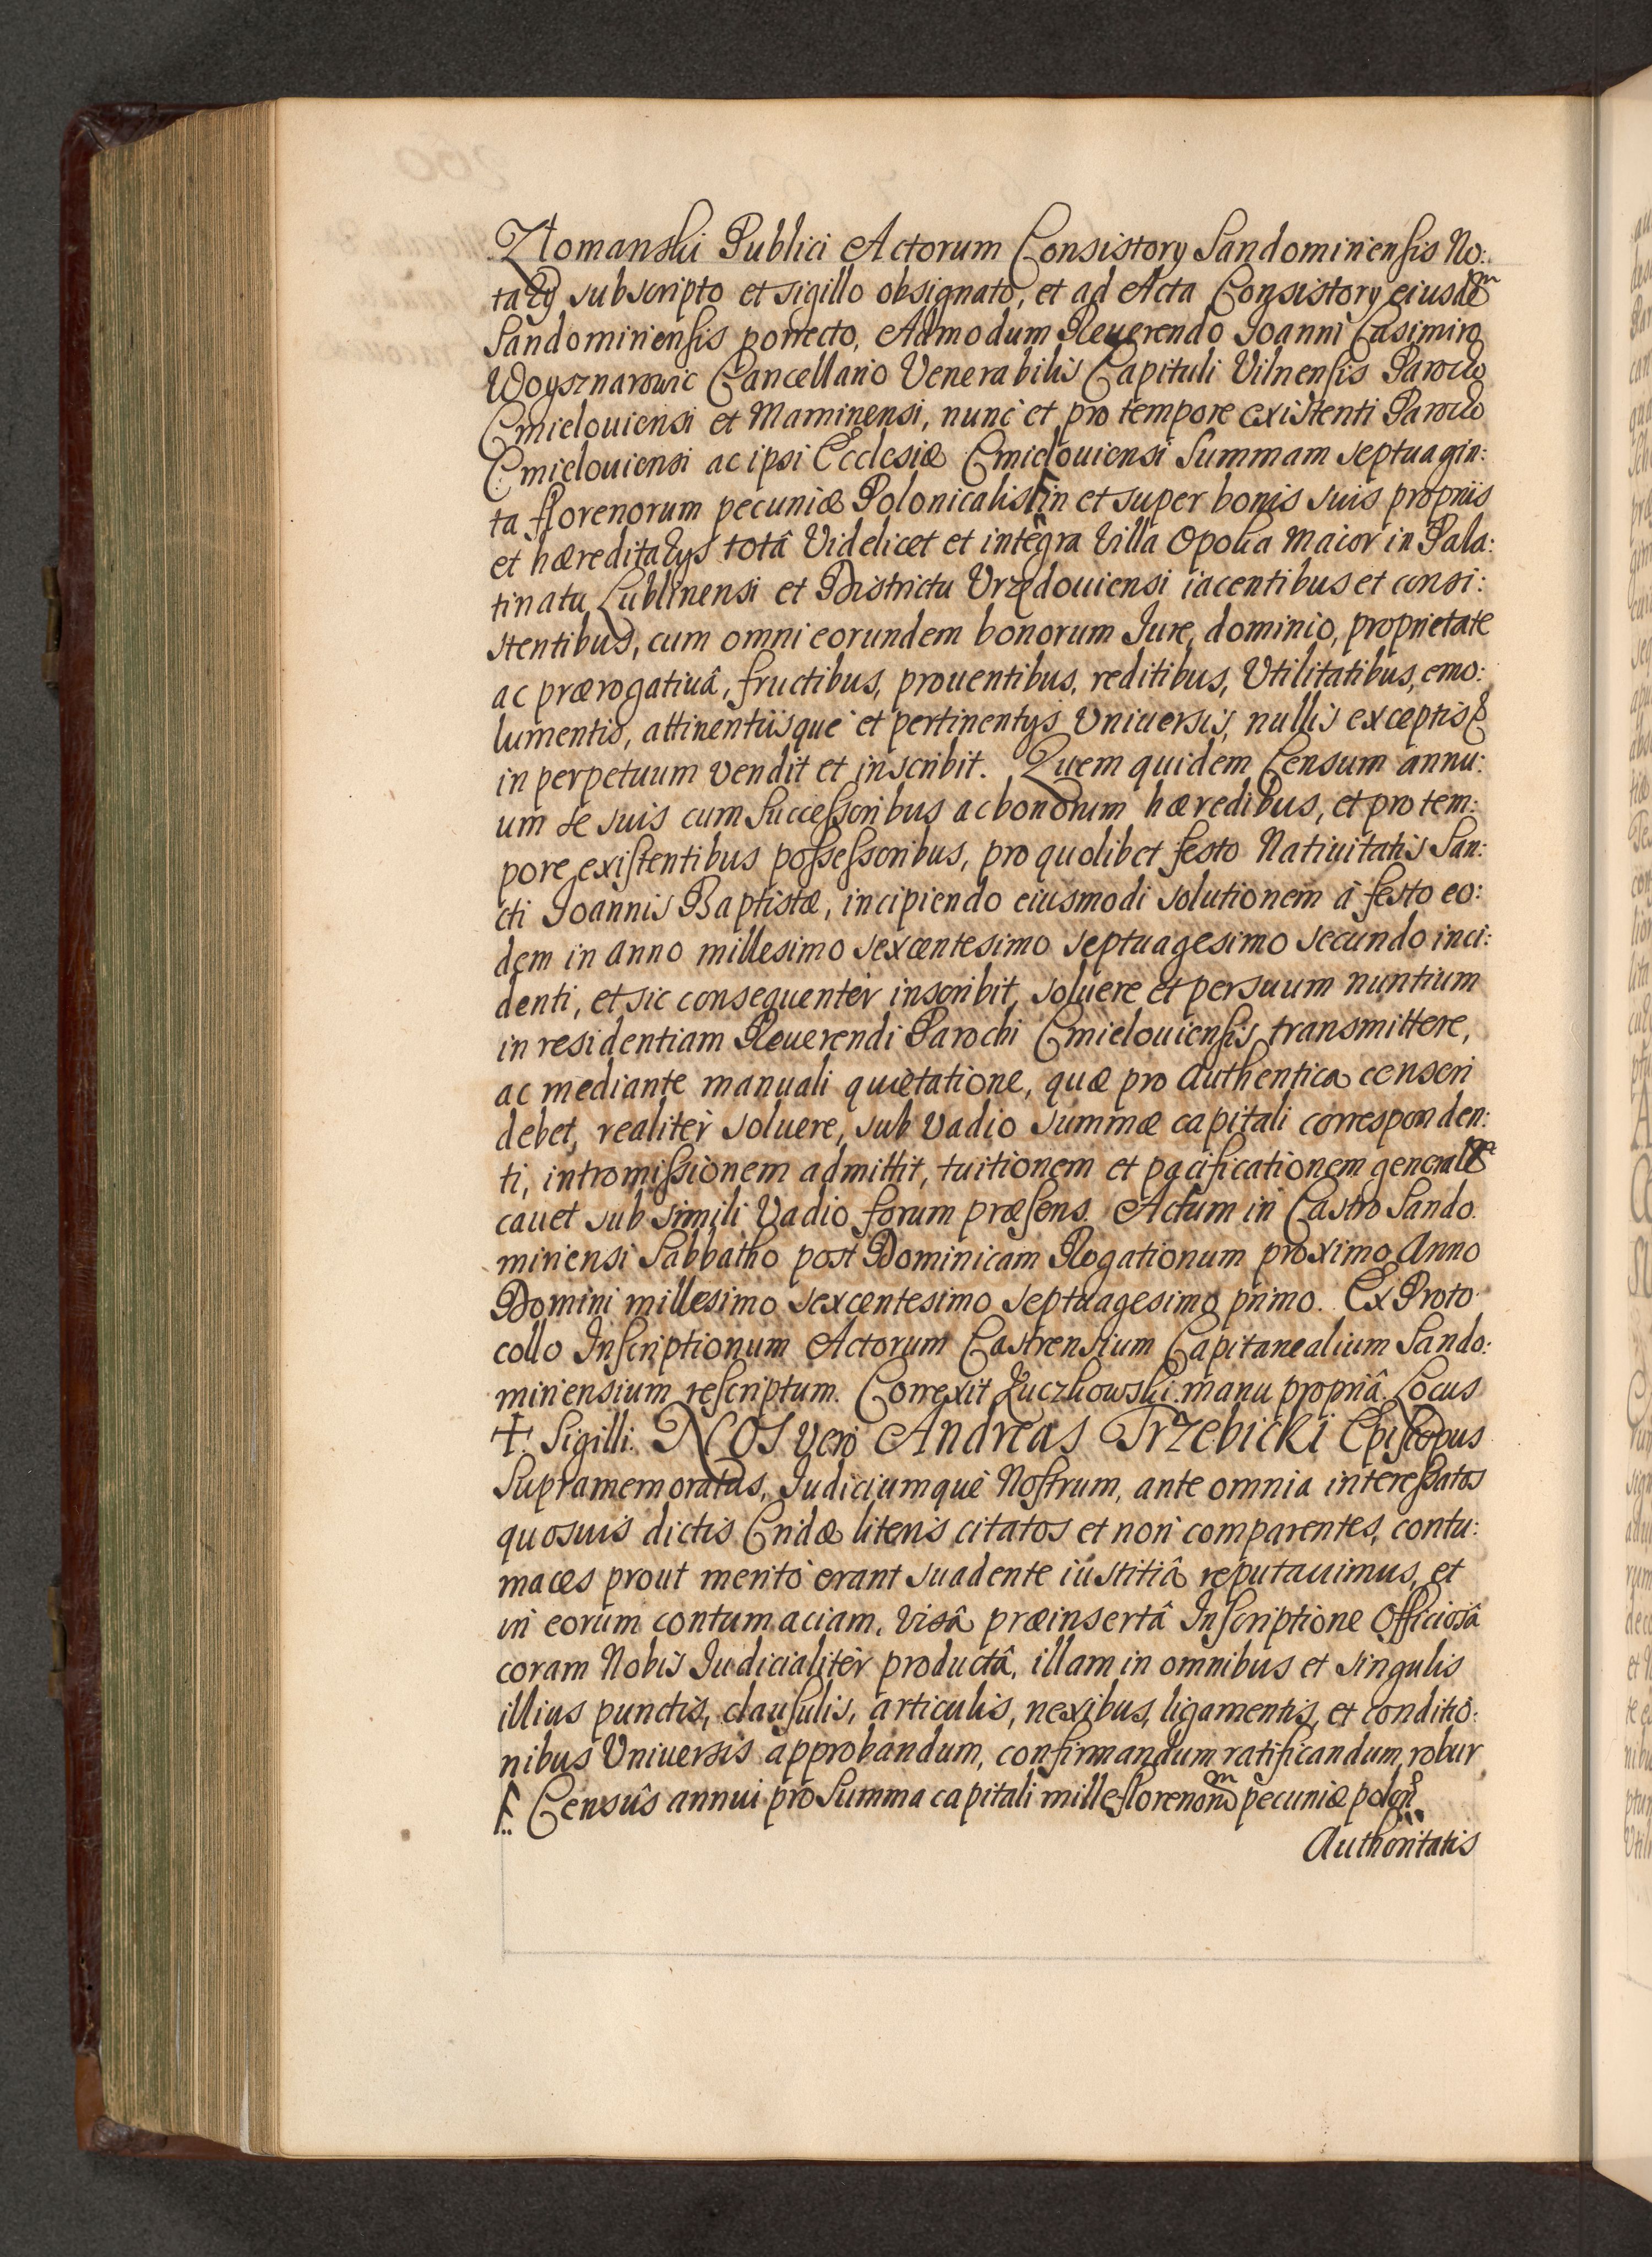 Złomanski Publici Actorum Consistory Sandomiriensis No:
tarÿ subscripto et sigillo obsignato, et ad Acta Consistory eiusdẽ
Sandomiriensis porrecto, Admodum Reuerendo Joanni Casimiro
Woysznarowic Cancellario Venerabilis Capituli Vilnensis Parocho
Cmielouiensi et Maminensi, nunc et pro tempore existenti Parocho
Cmielouiensi ac ipsi Ecclesiæ Cmielouiensi Summam septuagin:
ta florenorum pecuniæ Polonicalis in et super bonis suis proprijs
et hæreditarÿs totâ Videlicet et integra Villa Opolia Maior in Pala:
tinatu Lublinensi et Districtu Vrzędouiensi iacentibus et consi:
stentibus, cum omni eorundem bonorum Iure, dominio, proprietate
ac prærogatiuâ, fructibus, prouentibus, reditibus, Vtilitatibus, emo:
lumentis, attinentijsque et pertinentÿs Vniuersis, nullis exceptis
in perpetuum vendit et inscribit. Quem quidem Censum annu:
um se suis cum Successoribus ac bonorum hæredibus, et pro tem:
pore existentibus possessoribus, pro quolibet festo Natiuitatis San:
cti Joannis Baptistæ, incipiendo eiusmodi solutionem á festo eo:
dem in Anno millesimo sexcentesimo septuagesimo secundo inci:
denti, et sic consequentèr inscribit, soluere et per suum nuntium
in residentiam Reuerendi Parochi Cmielouiensis transmittere,
ac mediante manuali quietatione, quæ pro Authentica censeri
debet, realitèr soluere, sub Vadio summæ capitali corresponden:
ti, intromissionem admittit, tuitionem et pacificationem generalẽ
cauet sub simili Vadio forum præsens. Actum in Castro Sando.
miriensi Sabbatho post Dominicam Rogationum proximo Anno
Domini millesimo sexcentesimo septuagesimo primo. Ex Proto
collo Inscriptionum Actorum Castrensium Capitanealium Sando:
miriensium rescriptum. Correxit Łuczkowski manu propriâ. Locus
✝. Sigilli. NOS Verò Andreas Trzebicki Episcopus
Supramemoratus, Iudiciumquè Nostrum, ante omnia interessatos
quosuis dictis Cridæ literis citatos et non comparentes, contu:
maces prout meritò erant suadente iustitiâ reputauimus, et
in eorum contumaciam, visâ præinsertâ Inscriptione Officiosâ
coram Nobis Iudicialitèr productâ, illam in omnibus et singulis
illius punctis, clausulis, articulis, nexibus, ligamentis, et conditio:
nibus Vniuersis approbandum, confirmandum, ratificandum, robur
Censûs annui pro Summa capitali mille florenorũ pecuniæ polon
Authoritatis